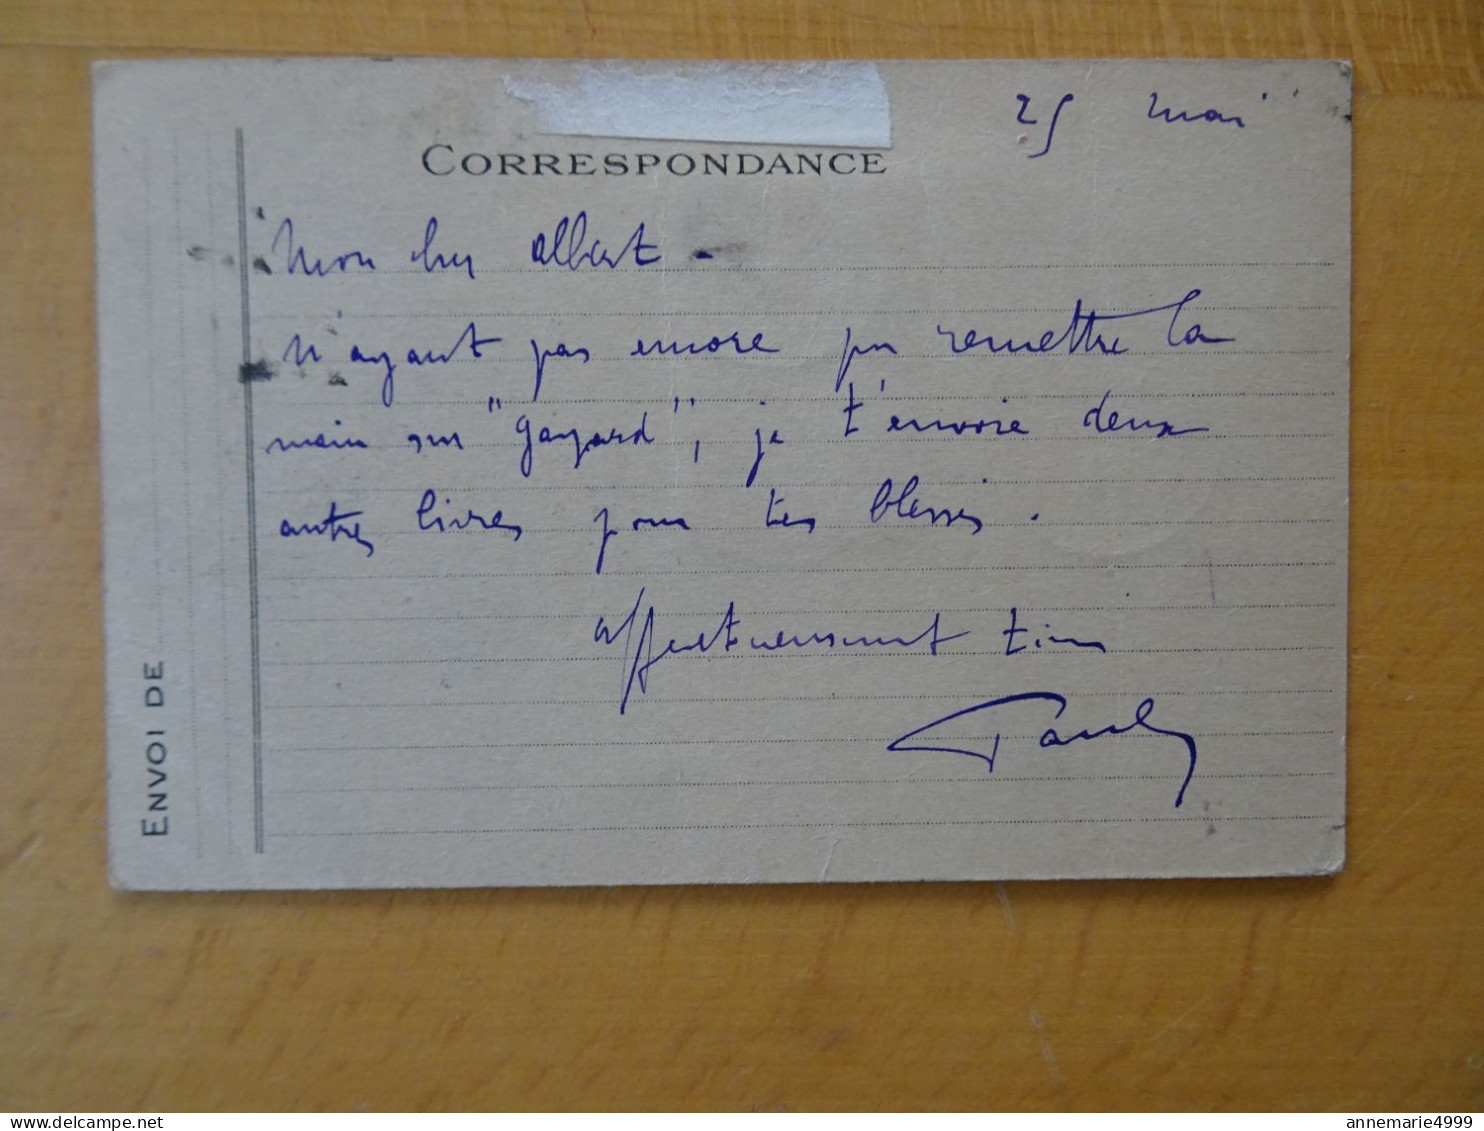 25 mai
CORRESPONDANCE
Mon cher Albert -
n'ayant pas encore pu remettre la
main sur "Gayard", je t'envoie deux
autres livres pour tes blessés.
affectueusement tien
Paul
ENVOI DE
delcampe.net
annemarie4999